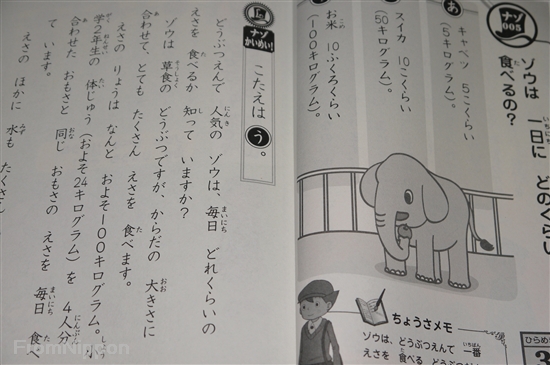 ナゾ
005
ゾウは 一日に どのくらい
食べるの?
あ
キャベツ 5こくらい
(5キログラム)。
スイカ 10こくらい
(50キログラム)。
お米 10ふくろくらい
(100キログラム)。
ちょうさメモ
ゾウは、どうぶつえんで 一番
えさを 食べる どうぶつ
ひらめ
ナゾ
かいめい!
こたえは う。
どうぶつえんで 人気の ゾウは、毎日 どれくらいの
えさを 食べるか 知って いますか?
ゾウは 草食の どうぶつですが、からだの 大きさに
合わせて、とても たくさん えさを 食べます。
えさの りょうは なんと およそ100キログラム。小
学2年生の 体じゅう(およそ24キログラム)を 4人分
合わせた おもさと 同じ おもさの えさを 毎日 食べ
て います。
えさの ほかに 水も たくさん